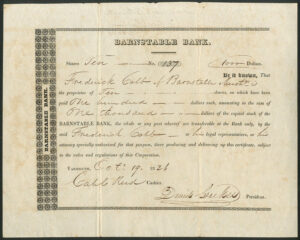 BARNSTABLE BANK.
Shares Ten No. 137 1000 Dollars.
Be it known, That
Frederick Cobb of Barnstable
the proprietor of Ten shares, on which have been
paid One hundred dollars each, amounting to the sum of
One thousand dollars of the capital stock of the
BARNSTABLE BANK, the whole or any part whereof are transferable at the Bank only, by the
said Frederick Cobb his legal representatives, or his
attorney specially authorized for that purpose, there producing and delivering up this certificate, subject
to the rules and regulations of this Corporation.
Yarmouth, Oct. 19
Caleb Reed Cashier.
President.
BARNSTABLE BANK.